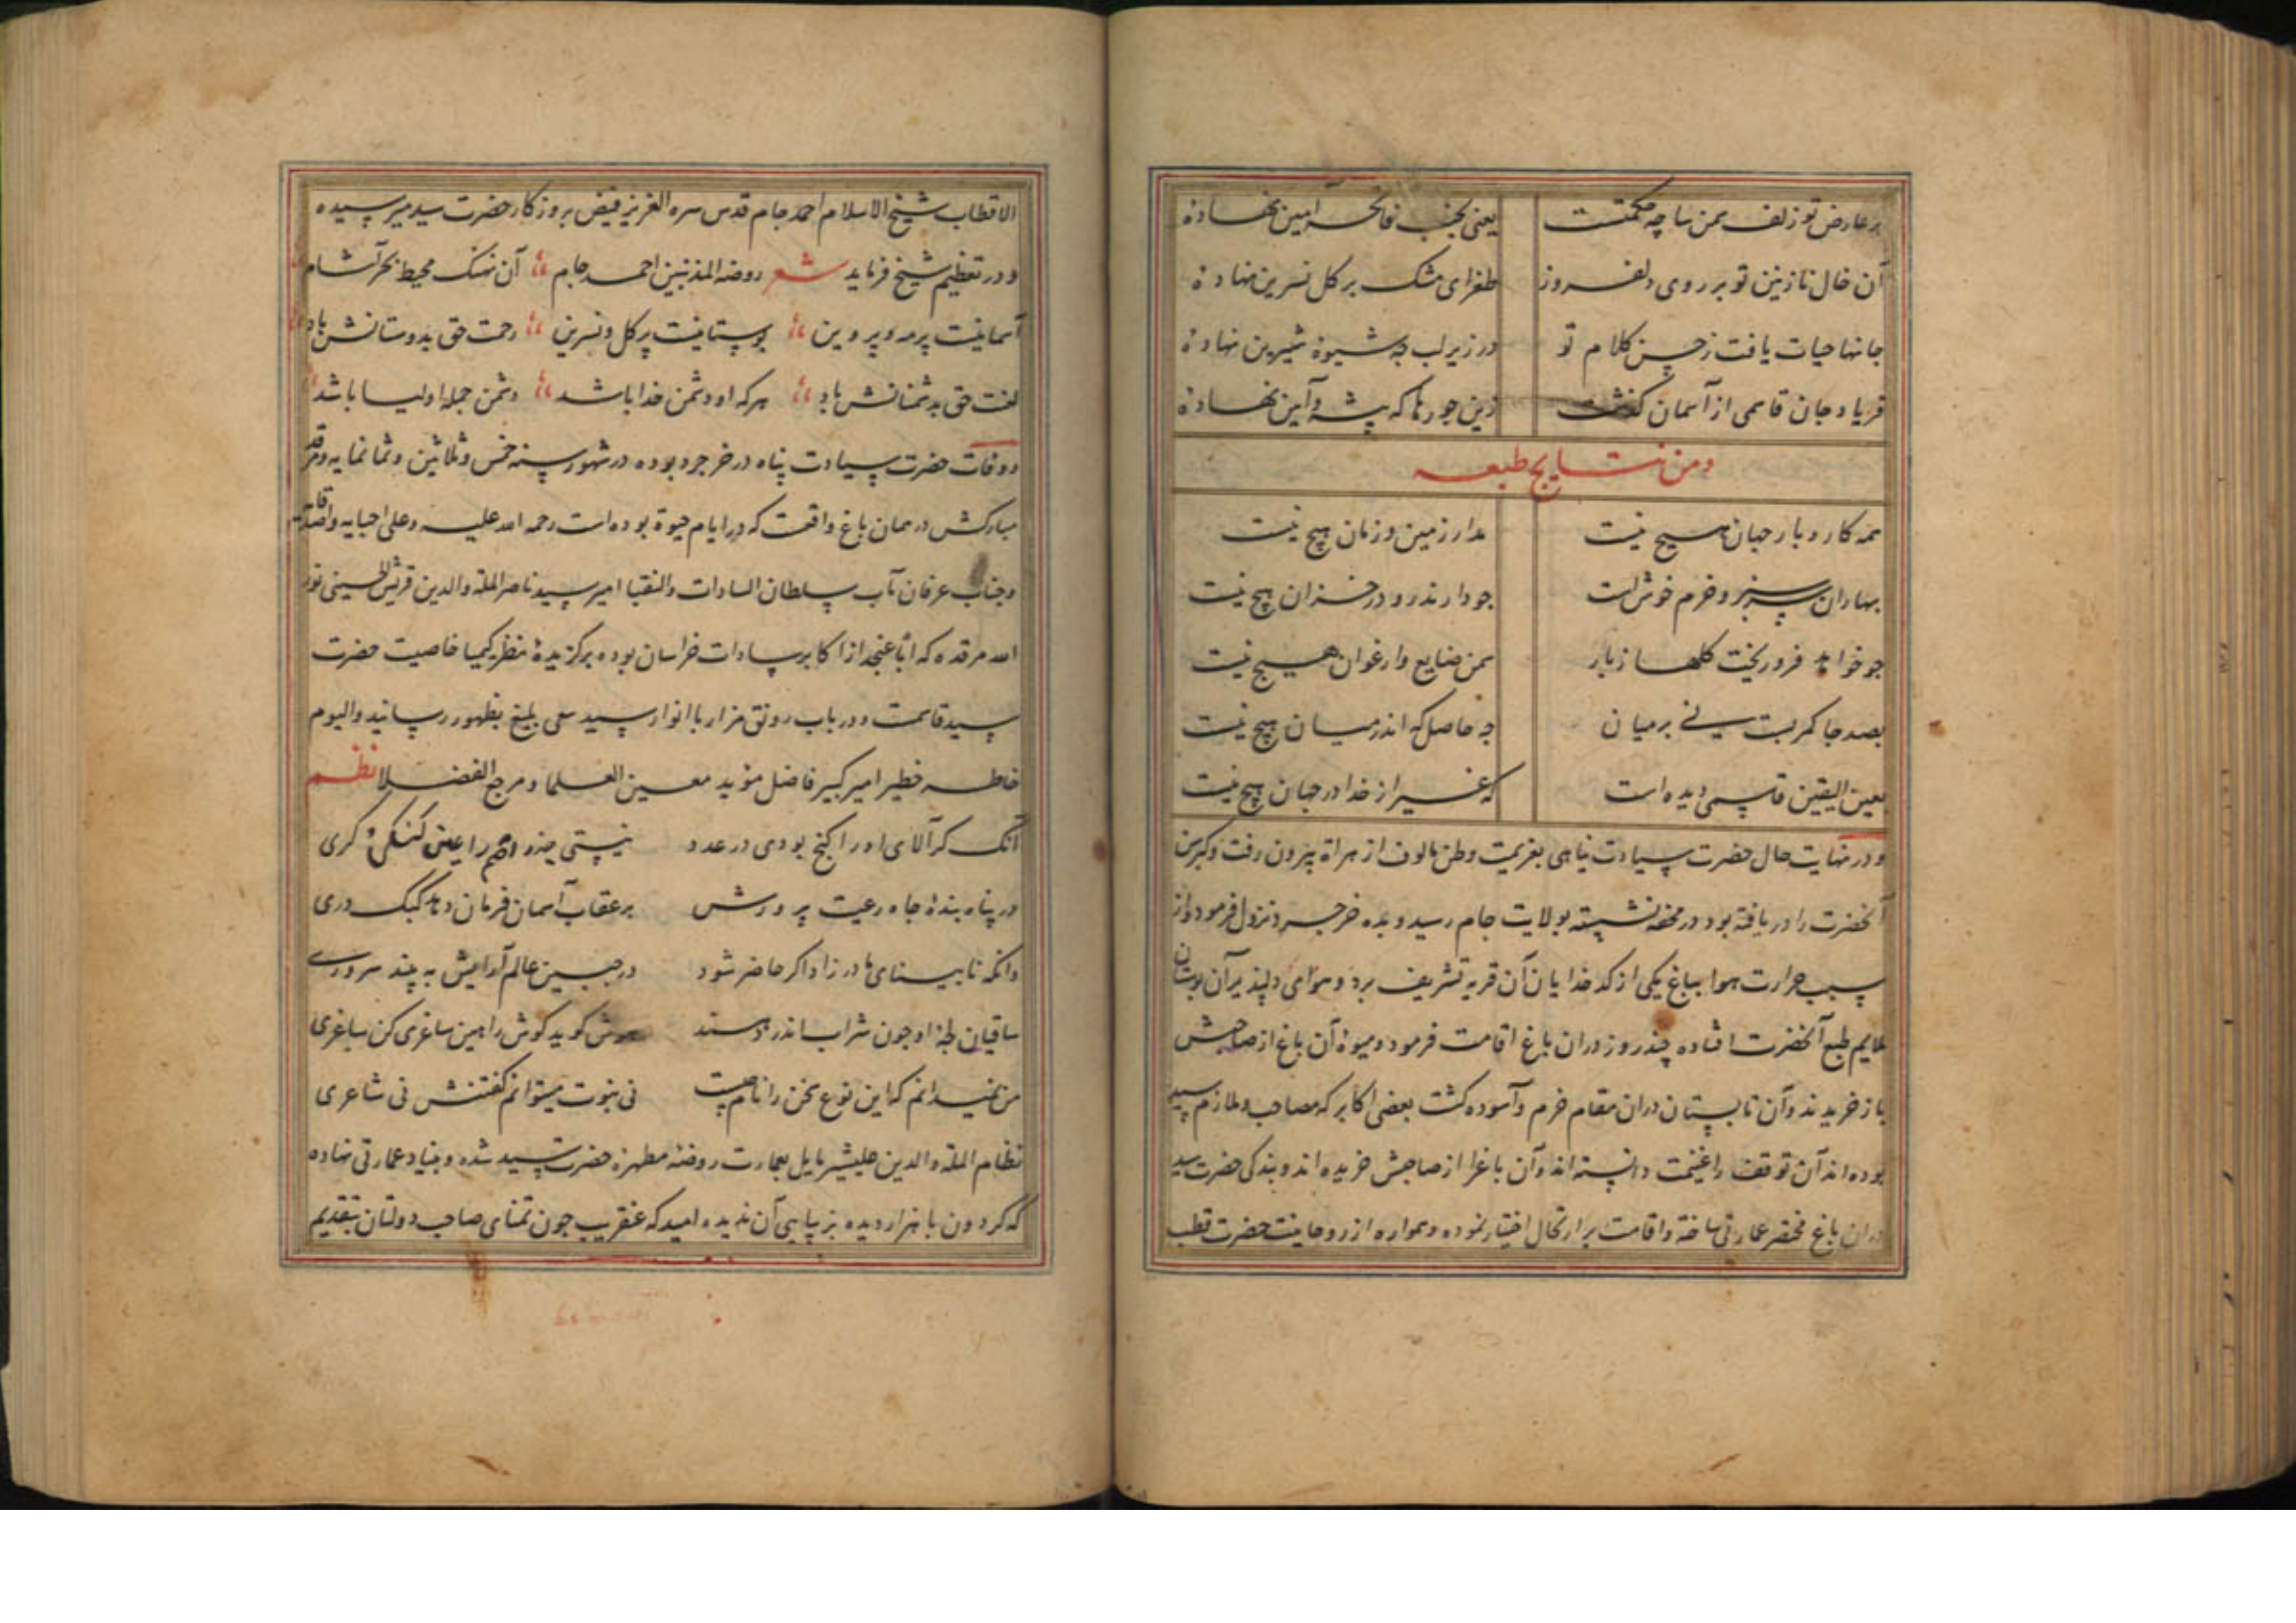 بر عارض تو زلف سمن سا چه حکمتست یعنی بجنب فاتحه آمین نهاده
آن خال نازنین تو بر روی دلفروز طغرای مشک بر کل نسرین نهاده
جانها حیات یافت ز حسن کلام تو در زیر لب چه شیوهٔ شیرین نهاده
فریاد جان قاسمی از آسمان کذشت زین جورها که پیشه و آیین نهاده
ومن نتایج طبعه
همه کار و بار جهان هیچ نیست مدار زمین و زمان هیچ نیست
بهاران سرسبز و خرم خوش است جو دارند رو در خزان هیچ نیست
جو خواهد فرو ریخت کلها ز بار سمن ضایع وارغوان هیچ نیست
بصد جا کمر بست نی بر میان چه حاصل که اندر میان هیچ نیست
بعین الیقین قاسمی دیده است که غیر از خدا در جهان هیچ نیست
و در نهایت حال حضرت سیادت پناهی بعزیمت وطن مالوف از هراة بیرون رفت و کبر سن
آنحضرت را دریافته بود در محفه نشسته بولایت جام رسید و بده خرجرد نزول فرمود و از
سبب حرارت هوا بباغ یکی از کدخدایان آن قریه تشریف برد و هوای دلپذیر آن بوستان
ملایم طبع آنحضرت افتاده چند روز دران باغ اقامت فرمود و میوهٔ آن باغ از صاحبش
باز خریدند و آن تابستان دران مقام خرم و آسوده کشت بعضی اکابر که مصاحب و ملازم سید
بوده اند آن توقف را غنیمت دانسته اند و آن باغ را از صاحبش خریده اند و بندکی حضرت سید
دران باغ مختصر عمارتی ساخته و اقامت بر ارتحال اختیار نموده و همواره از روحانیت حضرت قطب
الاقطاب شیخ الاسلام احمد جام قدس سره العزیز فیض بروزکار حضرت سید میرسیده
و در تعظیم شیخ فرماید شعر روضة المذنبین احمد جام آن نهنک محیط بحر آشام
آسمانیست پر مه و پروین بوستانیست پر کل و نسرین رحمت حق بدوستانش باد
لعنت حق بدشمنانش باد هرکه او دشمن خدا باشد دشمن جمله اولیا باشد
و وفات حضرت سیادت پناه در خرجرد بوده در شهور سنه خمس و ثلاثین و ثمانمایه و مرقد
مبارکش در همان باغ واقعست که در ایام حیوة بوده است رحمه الله علیه وعلی احبایه واصدقایه
و جناب عرفان مآب سلطان السادات والنقبا امیر سید ناصر الملة والدین قریش الحسینی نور
الله مرقده که اباً عن جد از اکابر سادات خراسان بوده برکزیدهٔ منظر کیمیا خاصیت حضرت
سید قاسمست و در باب رونق مزار با انوار سید سعی بلیغ بظهور رسانید والیوم
خاطر خطیر امیر کبیر فاضل مؤید معین العلما و مرجع الفضلا نظم
آنک کر آلای او را کنج بودی در عدد نیستی جذر اصم را عیب کنکی و کری
در پناه بندهٔ جاه رعیت پرورش بر عقاب آسمان فرمان دهد کبک دری
وانکه نابینای مادرزاد اکر حاضر شود در جبین عالم آرایش به بیند سروری
ساقیان او جون شراب اندر دهند هوش کوید کوش را هین ساغری کن ساغری
من نمیدانم که این نوع سخن را نام چیست نی نبوت میتوانم کفتنش نی شاعری
نظام الملة والدین علیشیر مایل بعمارت روضهٔ مطهرهٔ حضرت سید شده و بنیاد عمارتی نهاده
که کردون با هزار دیده بزیبایی آن ندیده امید که عنقریب جون تمنای صاحب دولتان بتقدیم